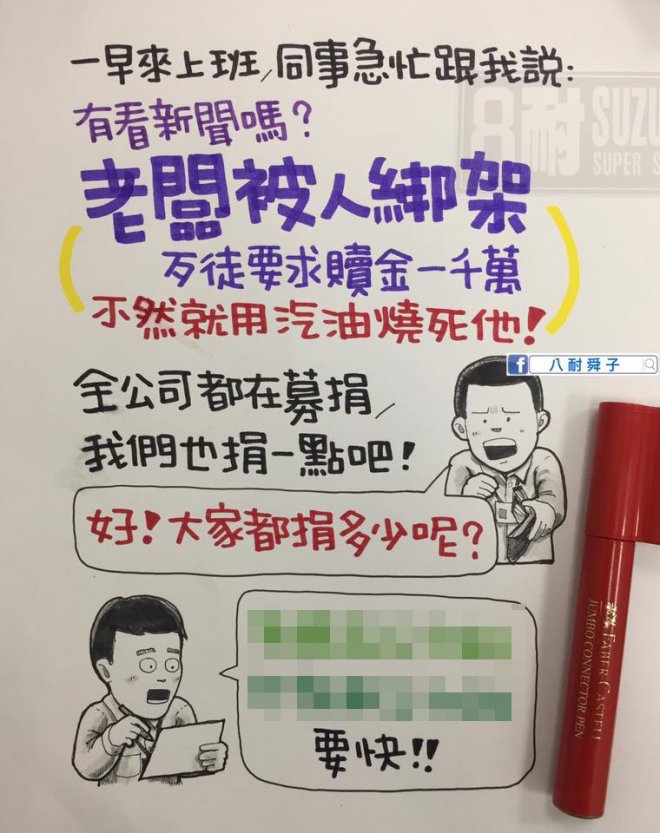 一早來上班,同事急忙跟我說:
有看新聞嗎?
老闆被人綁架
歹徒要求贖金一千萬
不然就用汽油燒死他!
全公司都在募捐,
我們也捐一點吧!
好!大家都捐多少呢?
要快!!
8耐
SUZU
SUPER S
f 八耐舜子
FABER-CASTELL
JUMBO CONNECTOR PEN